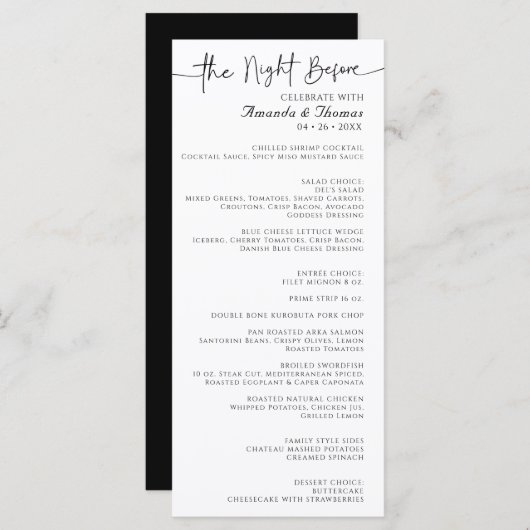 the Night Before
CELEBRATE WITH
Amanda & Thomas
04 • 26 • 20XX
CHILLED SHRIMP COCKTAIL
COCKTAIL SAUCE, SPICY MISO MUSTARD SAUCE
SALAD CHOICE:
DEL'S SALAD
MIXED GREENS, TOMATOES, SHAVED CARROTS,
CROUTONS, CRISP BACON, AVOCADO
GODDESS DRESSING
BLUE CHEESE LETTUCE WEDGE
ICEBERG, CHERRY TOMATOES, CRISP BACON,
DANISH BLUE CHEESE DRESSING
ENTRÉE CHOICE:
FILET MIGNON 8 OZ.
PRIME STRIP 16 OZ.
DOUBLE BONE KUROBUTA PORK CHOP
PAN ROASTED ARKA SALMON
SANTORINI BEANS, CRISPY OLIVES, LEMON
ROASTED TOMATOES
BROILED SWORDFISH
10 OZ. STEAK CUT, MEDITERRANEAN SPICED,
ROASTED EGGPLANT & CAPER CAPONATA
ROASTED NATURAL CHICKEN
WHIPPED POTATOES, CHICKEN JUS,
GRILLED LEMON
FAMILY STYLE SIDES
CHATEAU MASHED POTATOES
CREAMED SPINACH
DESSERT CHOICE:
BUTTERCAKE
CHEESECAKE WITH STRAWBERRIES